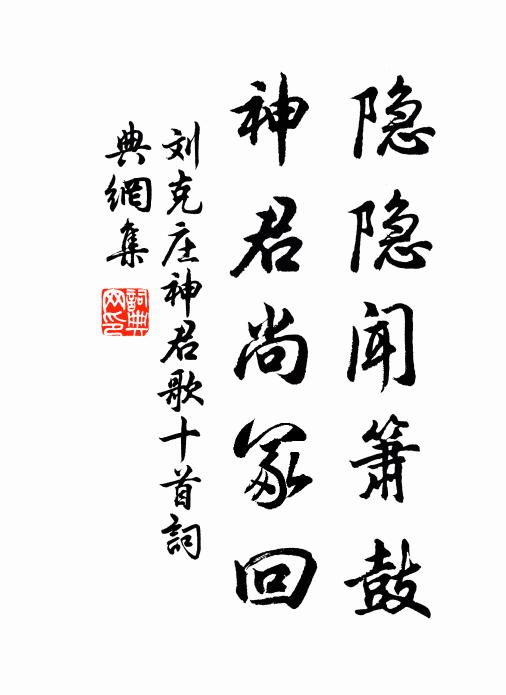 隐隐闻箫鼓
神君尚冢回
刘克庄神君歌十首詞
典網集
詞典
网印